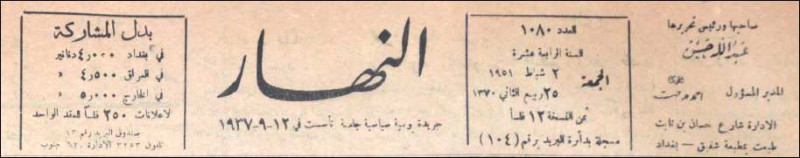 صاحبها ورئيس تحريرها
عبدالله حسن
المدير المسؤول
الادارة شارع حسان بن ثابت
طبعت بمطبعة شفيق - بغداد
العدد ١٠٨٠
السنة الرابعة عشرة
الجمعة
٢ شباط ١٩٥١
٢٥ ربيع الثاني ١٣٧٠
ثمن النسخة ١٢ فلساً
مسجلة بدائرة البريد برقم (١٠٤)
النهار
جريدة يومية سياسية جامعة تأسست في ١٢-٩-١٩٣٧
بدل المشاركة
في بغداد ٤٫٠٠٠ دنانير
في العراق ٤٫٥٠٠ »
في الخارج ٥٫٠٠٠ »
الاعلانات ٢٥٠ فلساً للعقد الواحد
صندوق البريد رقم ١٣
تلفون ٣٢٥٣ الادارة